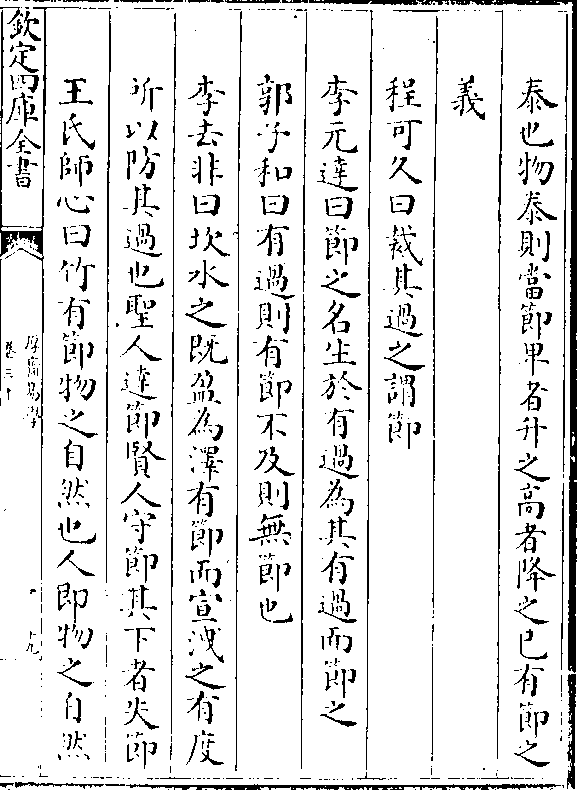 泰也物泰則當節卑者升之高者降之已有節之
義
程可久曰裁其過之謂節
李元達曰節之名生於有過為其有過而節之
郭子和曰有過則有節不及則無節也
李去非曰坎水之既盈為澤有節而宣洩之有度
所以防其過也聖人達節賢人守節其下者失節
王氏師心曰竹有節物之自然也人即物之自然
欽定四庫全書
厚齋易學
卷三十